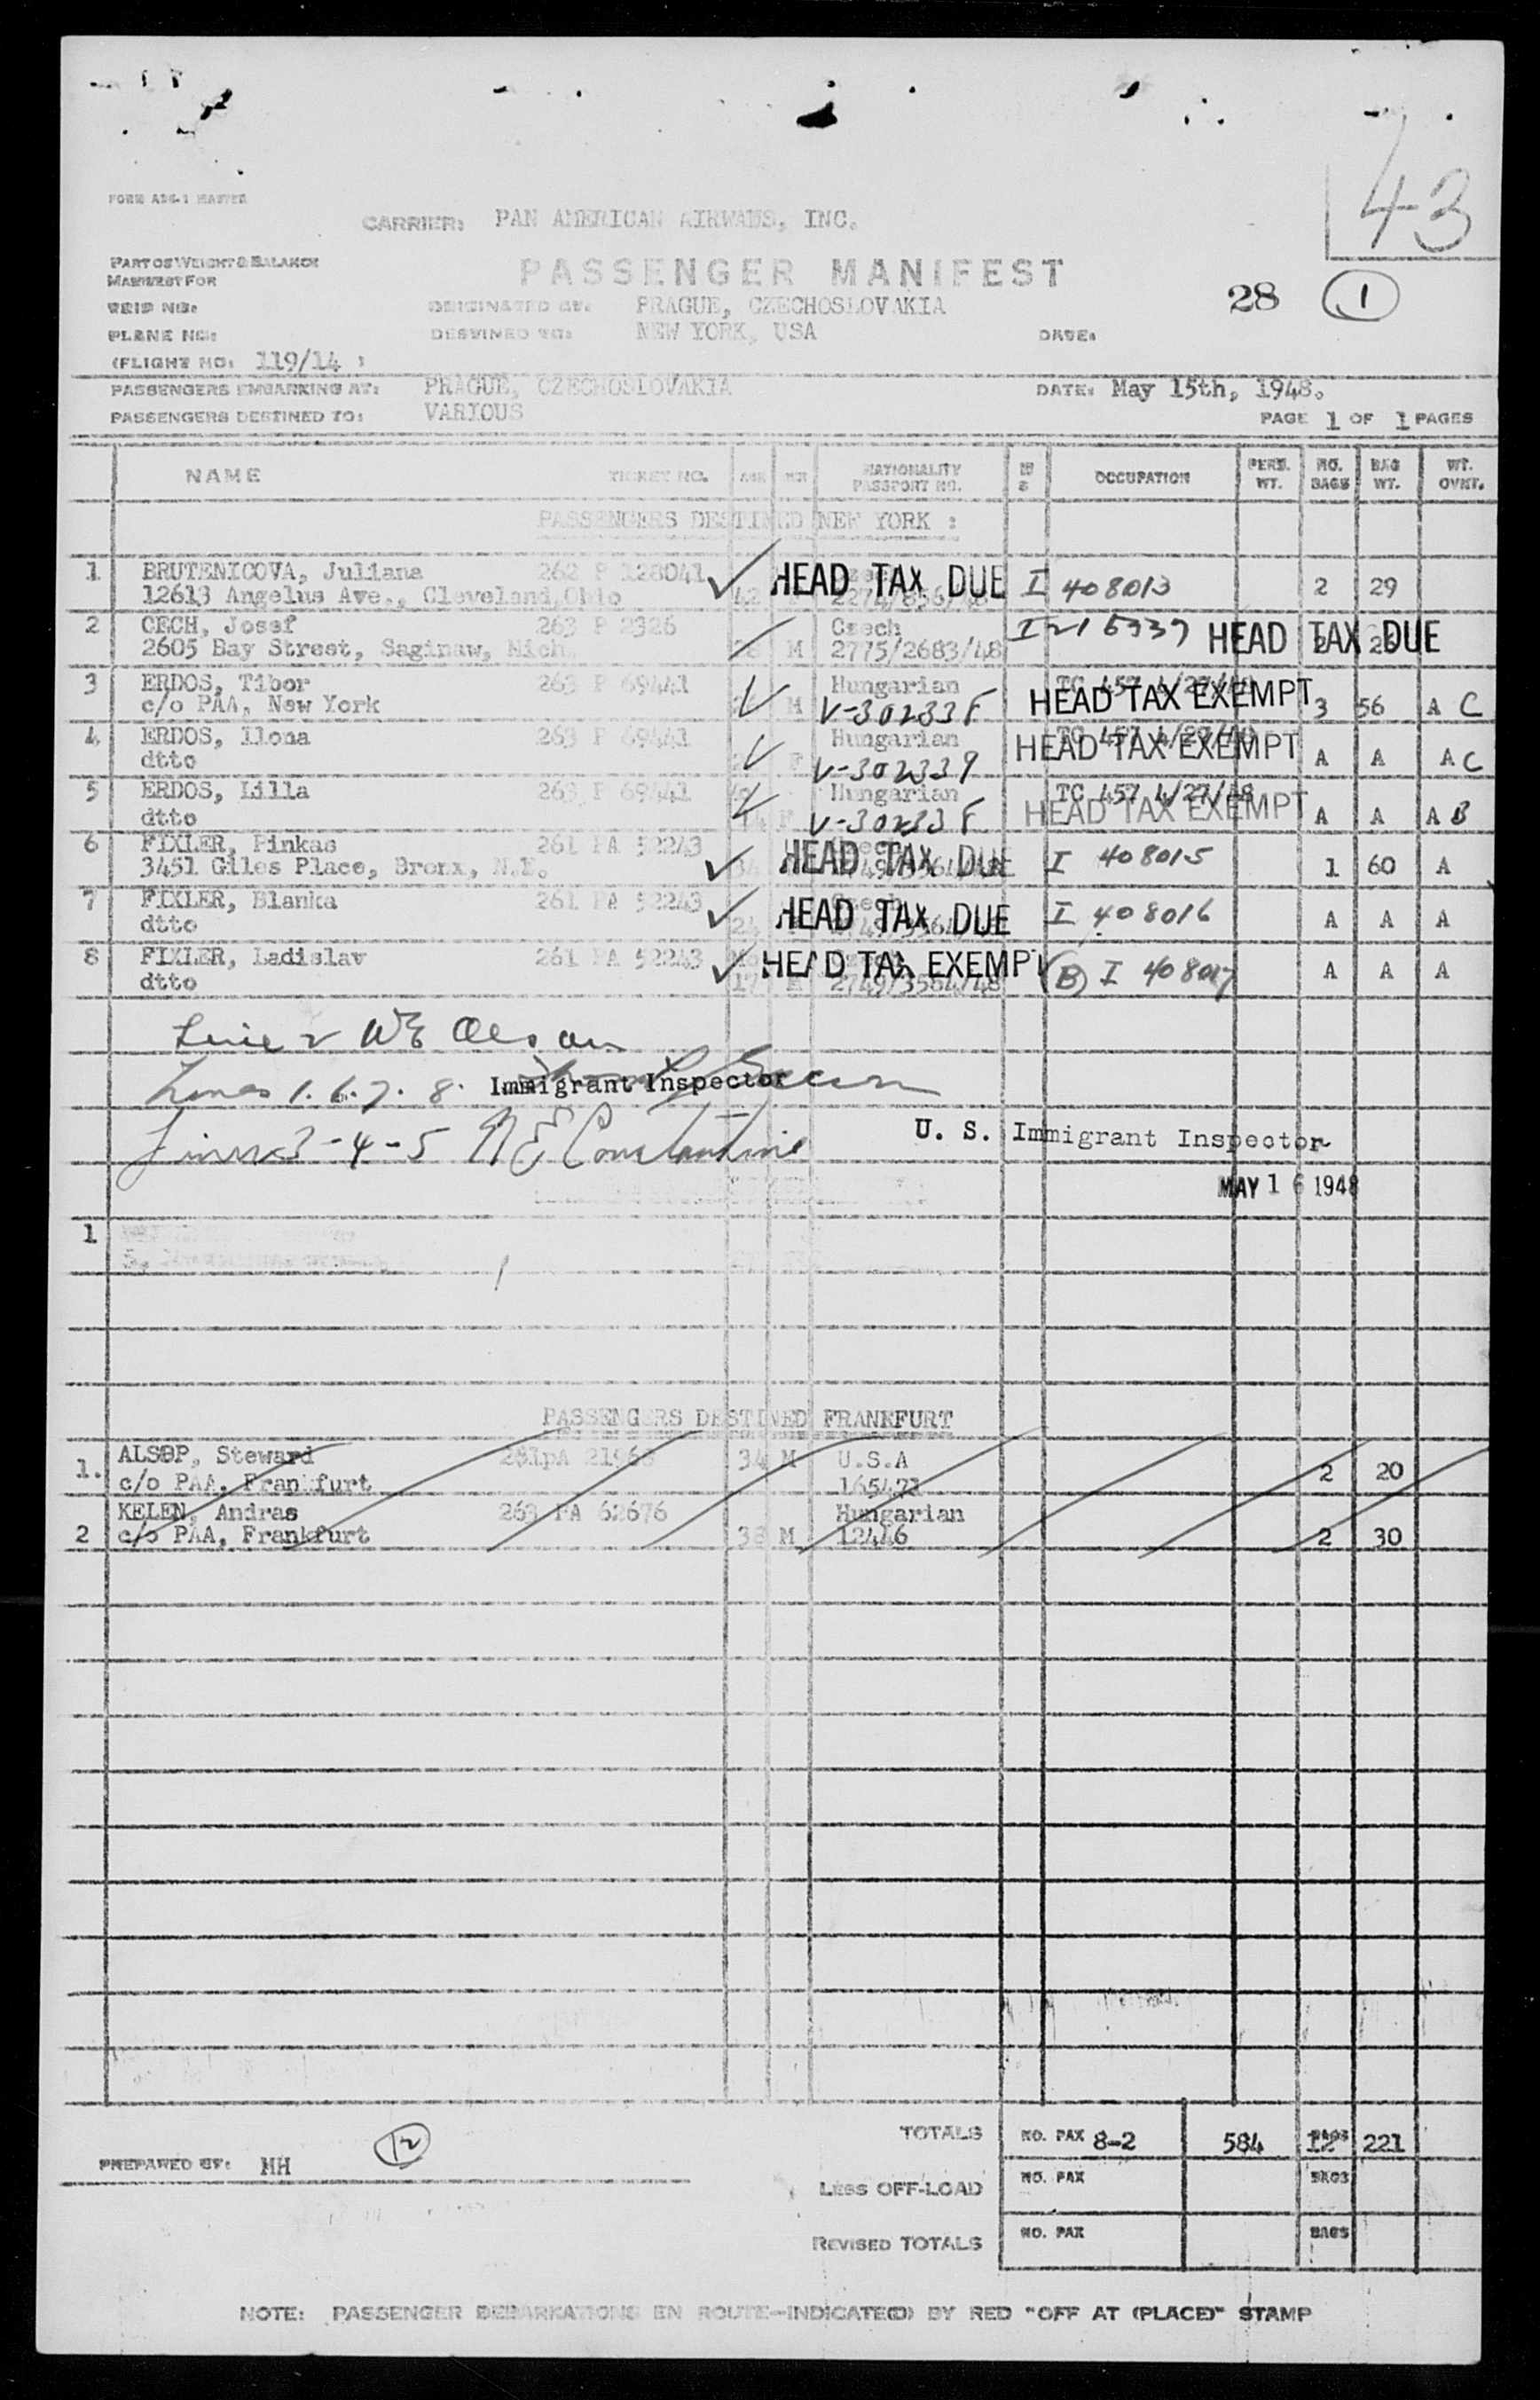 43
FORM ADS-1 MASTER
CARRIER: PAN AMERICAN AIRWAYS, INC.
PART OF WEIGHT & BALANCE
MANIFEST FOR
PASSENGER MANIFEST
28 1
TRIP NO:
ORIGINATED AT: PRAGUE, CZECHOSLOVAKIA
PLANE NO:
DESTINED TO: NEW YORK, USA
DATE:
(FLIGHT NO: 119/14 )
PASSENGERS EMBARKING AT: PRAGUE, CZECHOSLOVAKIA DATE: May 15th, 1948.
PASSENGERS DESTINED TO: VARIOUS
PAGE 1 OF 1 PAGES
NAME TICKET NO. AGE NATIONALITY PASSPORT NO. OCCUPATION PERS. WT. NO. BAGS BAG WT. WT. OVNT.
PASSENGERS DESTINED NEW YORK :
1 BRUTENICOVA, Juliana 262 P 128041 HEAD TAX DUE I 408013 2 29
12613 Angelus Ave., Cleveland, Ohio 42
2 CECH, Josef 263 P 2326 Czech HEAD TAX DUE
2605 Bay Street, Saginaw, Mich. M 2775/2683/48
3 ERDOS, Tibor 263 P 69441 Hungarian TC 457 4/27/48 HEAD TAX EXEMPT 3 56 A C
c/o PAA, New York M V-302338
4 ERDOS, Ilona 263 P 69441 Hungarian TC 457 4/27/48 HEAD TAX EXEMPT A A A C
dtto F V-302339
5 ERDOS, Lilla 263 P 69441 Hungarian TC 457 4/27/48 HEAD TAX EXEMPT A A A B
dtto F V-302338
6 FIXLER, Pinkas 261 PA 52243 HEAD TAX DUE I 408015 1 60 A
3451 Giles Place, Bronx, N.Y. 34
7 FIXLER, Blanka 261 PA 52243 Czech HEAD TAX DUE I 408016 A A A
dtto 24
8 FIXLER, Ladislav 261 PA 52243 HEAD TAX EXEMPT (B) I 408017 A A A
dtto 17 M 2749/3564/48
Line 2 WE Olson
Lines 1. 6. 7. 8. Immigrant Inspector
Lines 3-4-5 N E Constantine
U. S. Immigrant Inspector
MAY 16 1948
1
PASSENGERS DESTINED FRANKFURT
1. ALSOP, Steward 261PA 21968 34 M U.S.A 2 20
c/o PAA, Frankfurt 165471
KELEN, Andras 263 PA 62676 Hungarian
2 c/o PAA, Frankfurt 38 M 12446 2 30
TOTALS NO. PAX 8-2 584 BAGS 12 221
12
PREPARED BY: MH
LESS OFF-LOAD NO. PAX BAGS
REVISED TOTALS NO. PAX BAGS
NOTE: PASSENGER DEBARKATIONS EN ROUTE—INDICATE(D) BY RED "OFF AT (PLACE)" STAMP